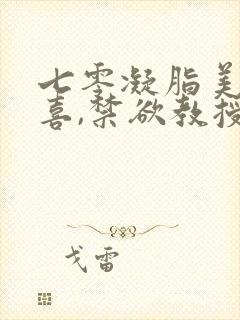 七零凝脂美
喜,禁欲教授
戈雷